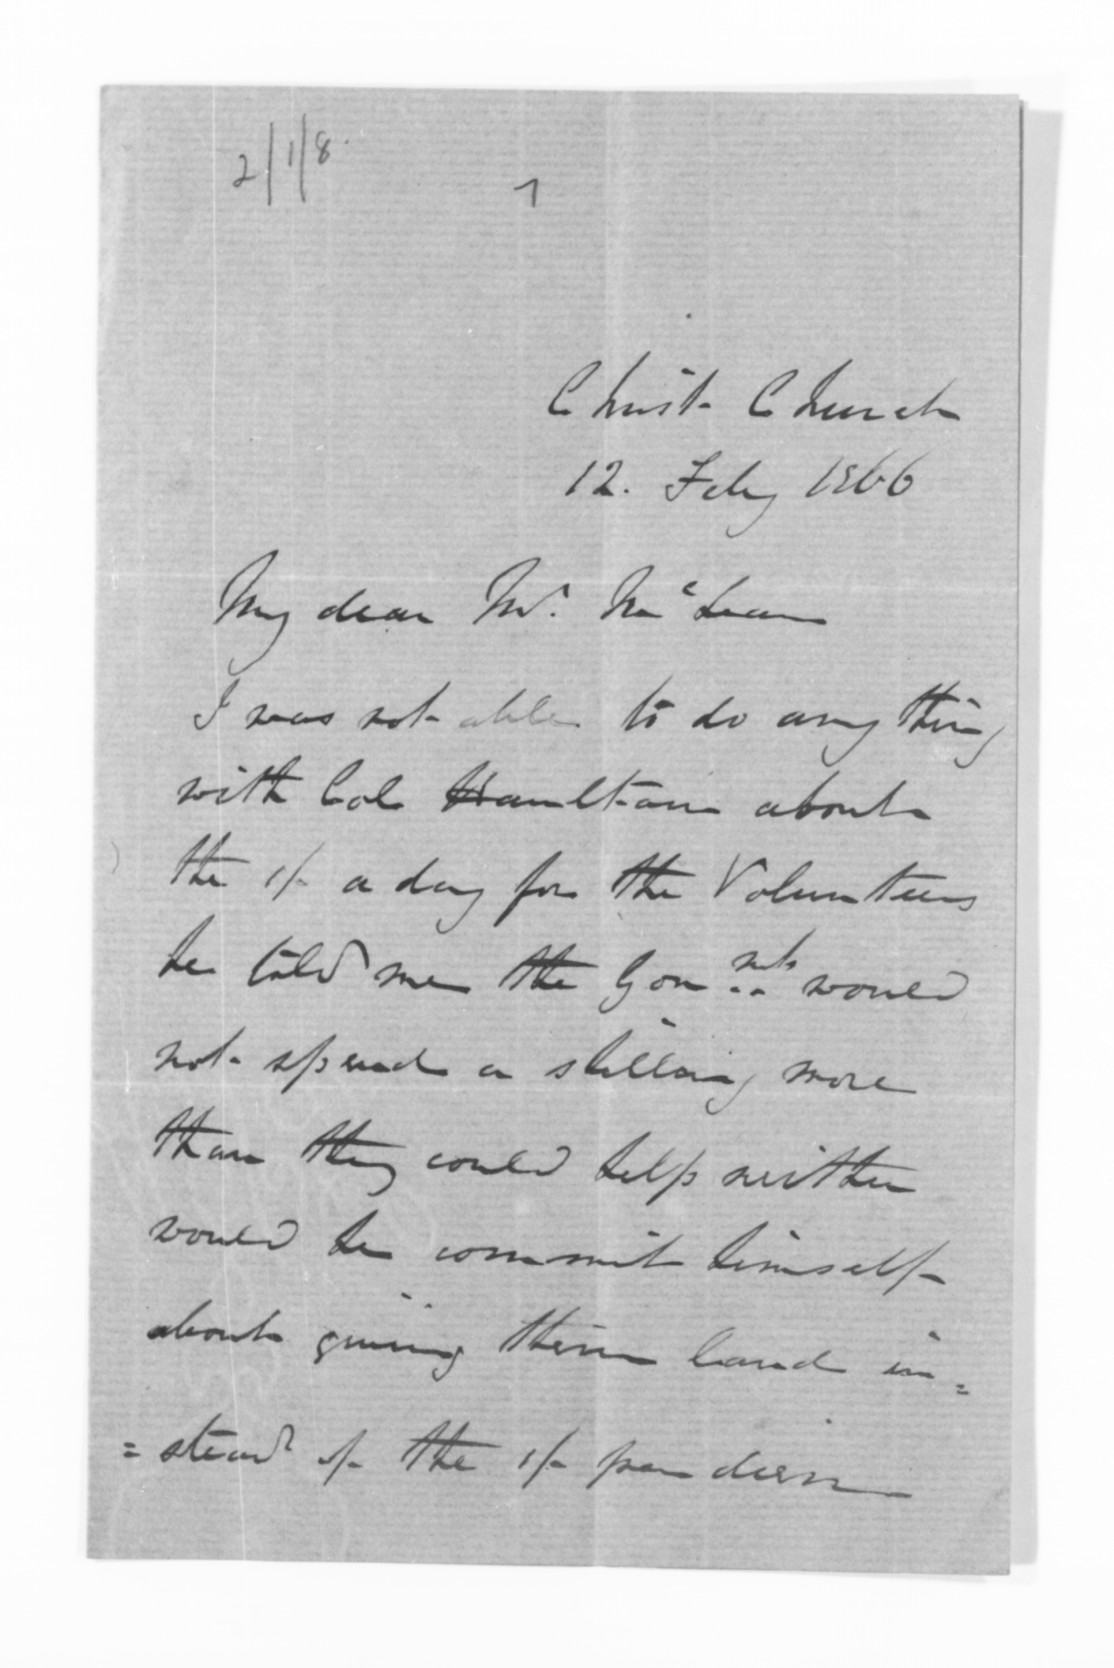 2/1/8.
7
Christ Church
12. Feby 1866
My dear Mr. McLean
I was not able to do any thing
with Col Hamilton about
the 1/- a day for the Volunteers
he told me the Govmnt would
not spend a shilling more
than they could help neither
would he commit himself
about giving them land in=
=stead of the 1/- per diem